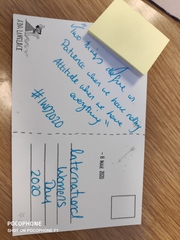 ADA LOVELACE
"Two things define us
Patience when we have nothing
Attitude when we have
everything"
#IWD2020
- 8 MAR 2020
International
Womens
Day
2020
POCOPHONE
SHOT ON POCOPHONE F1